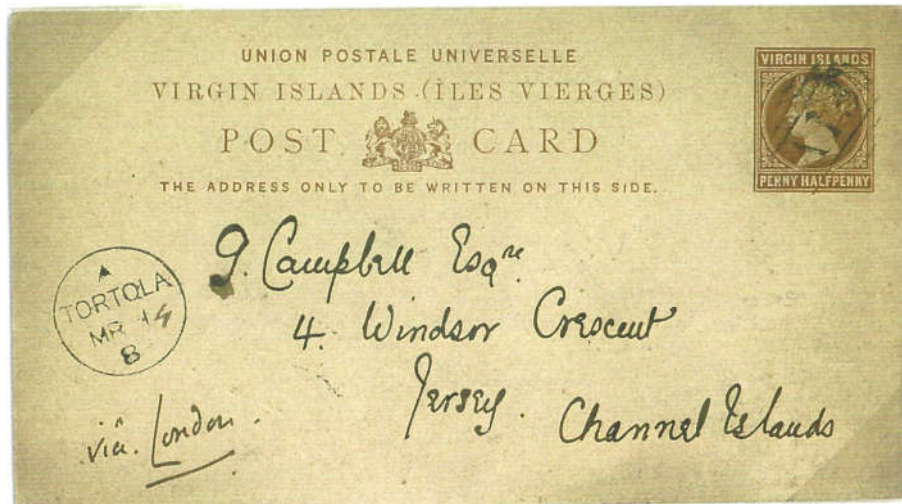 UNION POSTALE UNIVERSELLE
VIRGIN ISLANDS (ÎLES VIERGES)
POST CARD
THE ADDRESS ONLY TO BE WRITTEN ON THIS SIDE.
VIRGIN ISLANDS
PENNY HALFPENNY
G. Campbell Esqre
4. Windsor Crescent
Jersey. Channel Islands
A
TORTOLA
MR 14
8
via. London.